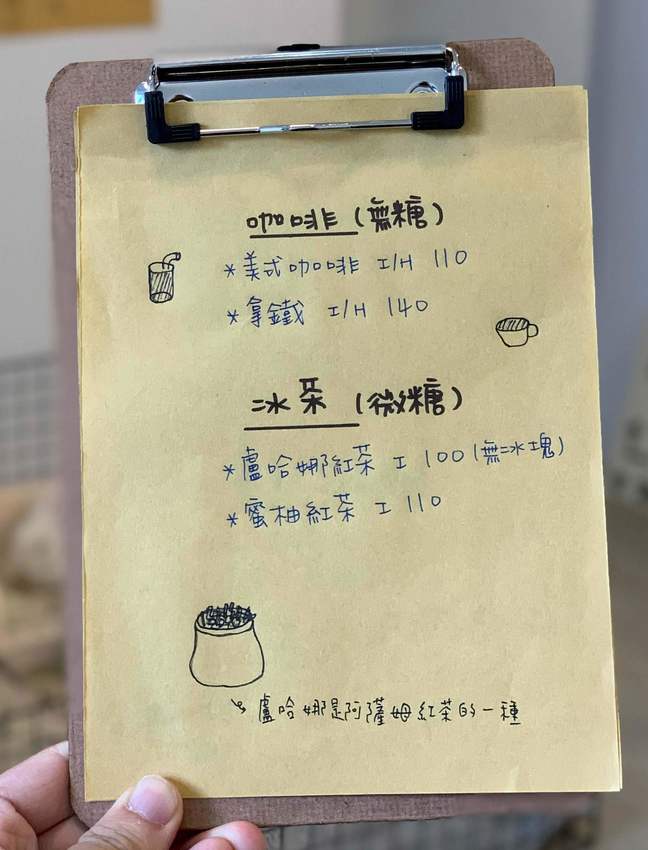 咖啡（無糖）
*美式咖啡 I/H 110
*拿鐵 I/H 140
冰茶（微糖）
*盧哈娜紅茶 I 100（無冰塊）
*蜜柚紅茶 I 110
盧哈娜是阿薩姆紅茶的一種